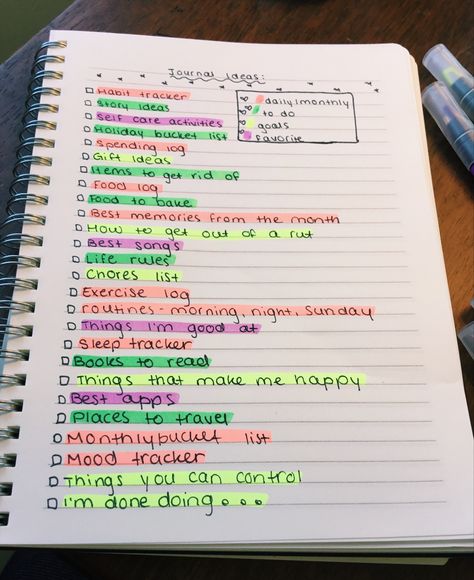 Journal Ideas:
Habit tracker
Story Ideas
Self care activities
Holiday bucket list
Spending log
Gift Ideas
Items to get rid of
Food log
Food to bake
Best memories from the month
How to get out of a rut
Best songs
Life rules
Chores list
Exercise log
routines - morning, night, Sunday
Things I'm good at
Sleep tracker
Books to read
Things that make me happy
Best apps
Places to travel
Monthly bucket list
Mood tracker
Things you can control
I'm done doing....
daily/monthly
to do
goals
favorite